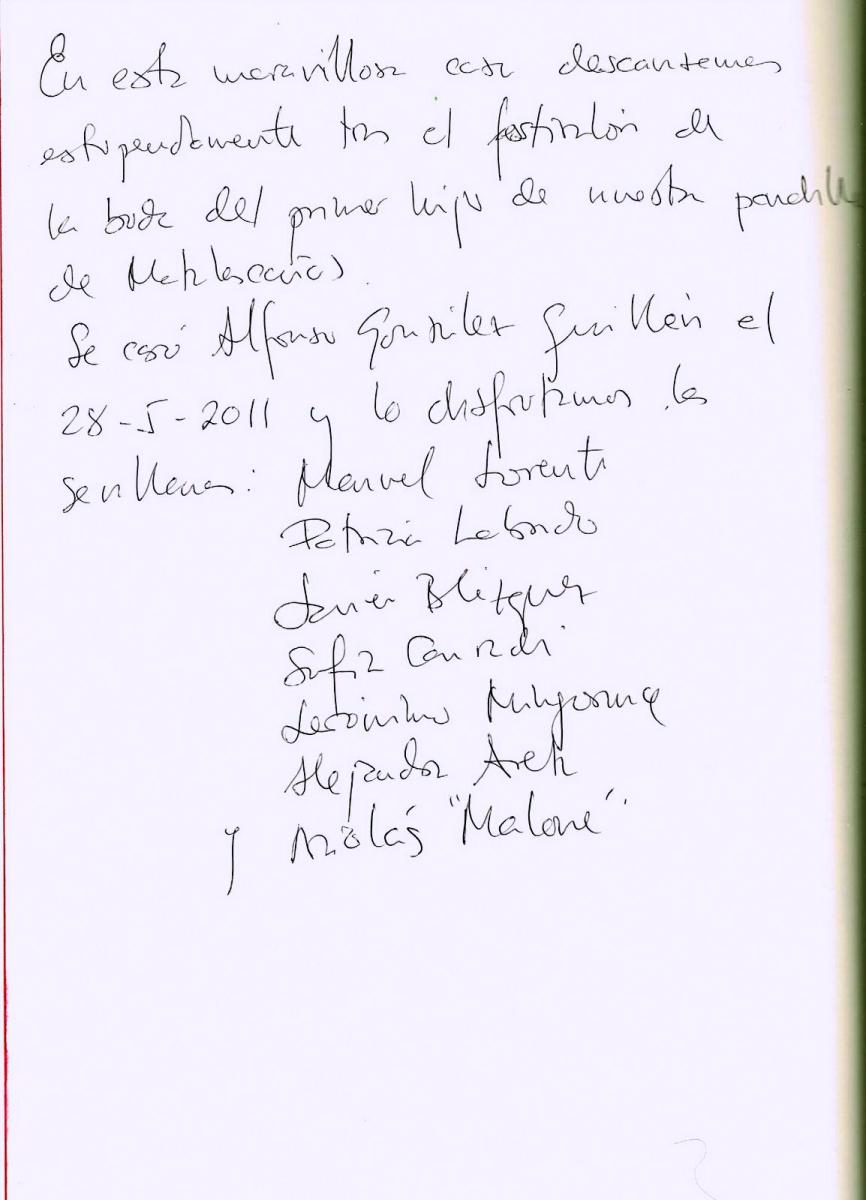 En esta maravillosa casa descansamos
estupendamente tras el festivalón de
la boda del primer hijo de nuestra pandilla
de Matalascañas.
Se casó Alfonso González Guillén el
28-5-2011 y lo disfrutamos los
sevillanos: Manuel Lorente
Patricia Laborda
Javier Blázquez
Sofía Conradi
Jerónimo
Alejandra
y Nicolás "Maloné".